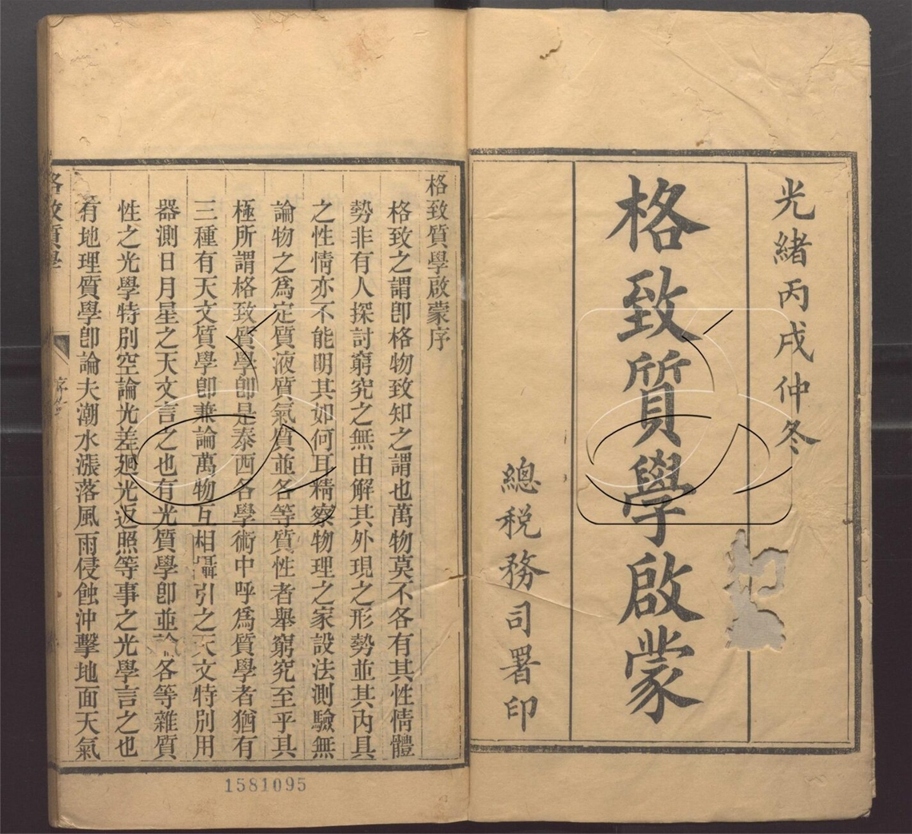 光緒丙戌仲冬
格致質學啟蒙
總稅務司署印
格致質學啟蒙序
格致之謂卽格物致知之謂也萬物莫不各有其性情體
勢非有人探討窮究之無由解其外現之形勢並其內具
之性情亦不能明其如何耳精察物理之家設法測驗無
論物之爲定質液質氣質並各等質性者舉窮究至乎其
極所謂格致質學卽是泰西各學術中呼爲質學者猶有
三種有天文質學卽兼論萬物互相灄引之天文特別用
器測日月星之天文言之也有光質學卽並論各等雜質
性之光學特別空論光差廻光返照等事之光學言之也
有地理質學卽論夫潮水漲落風雨侵蝕沖擊地面天氣
格致質學
序
1581095